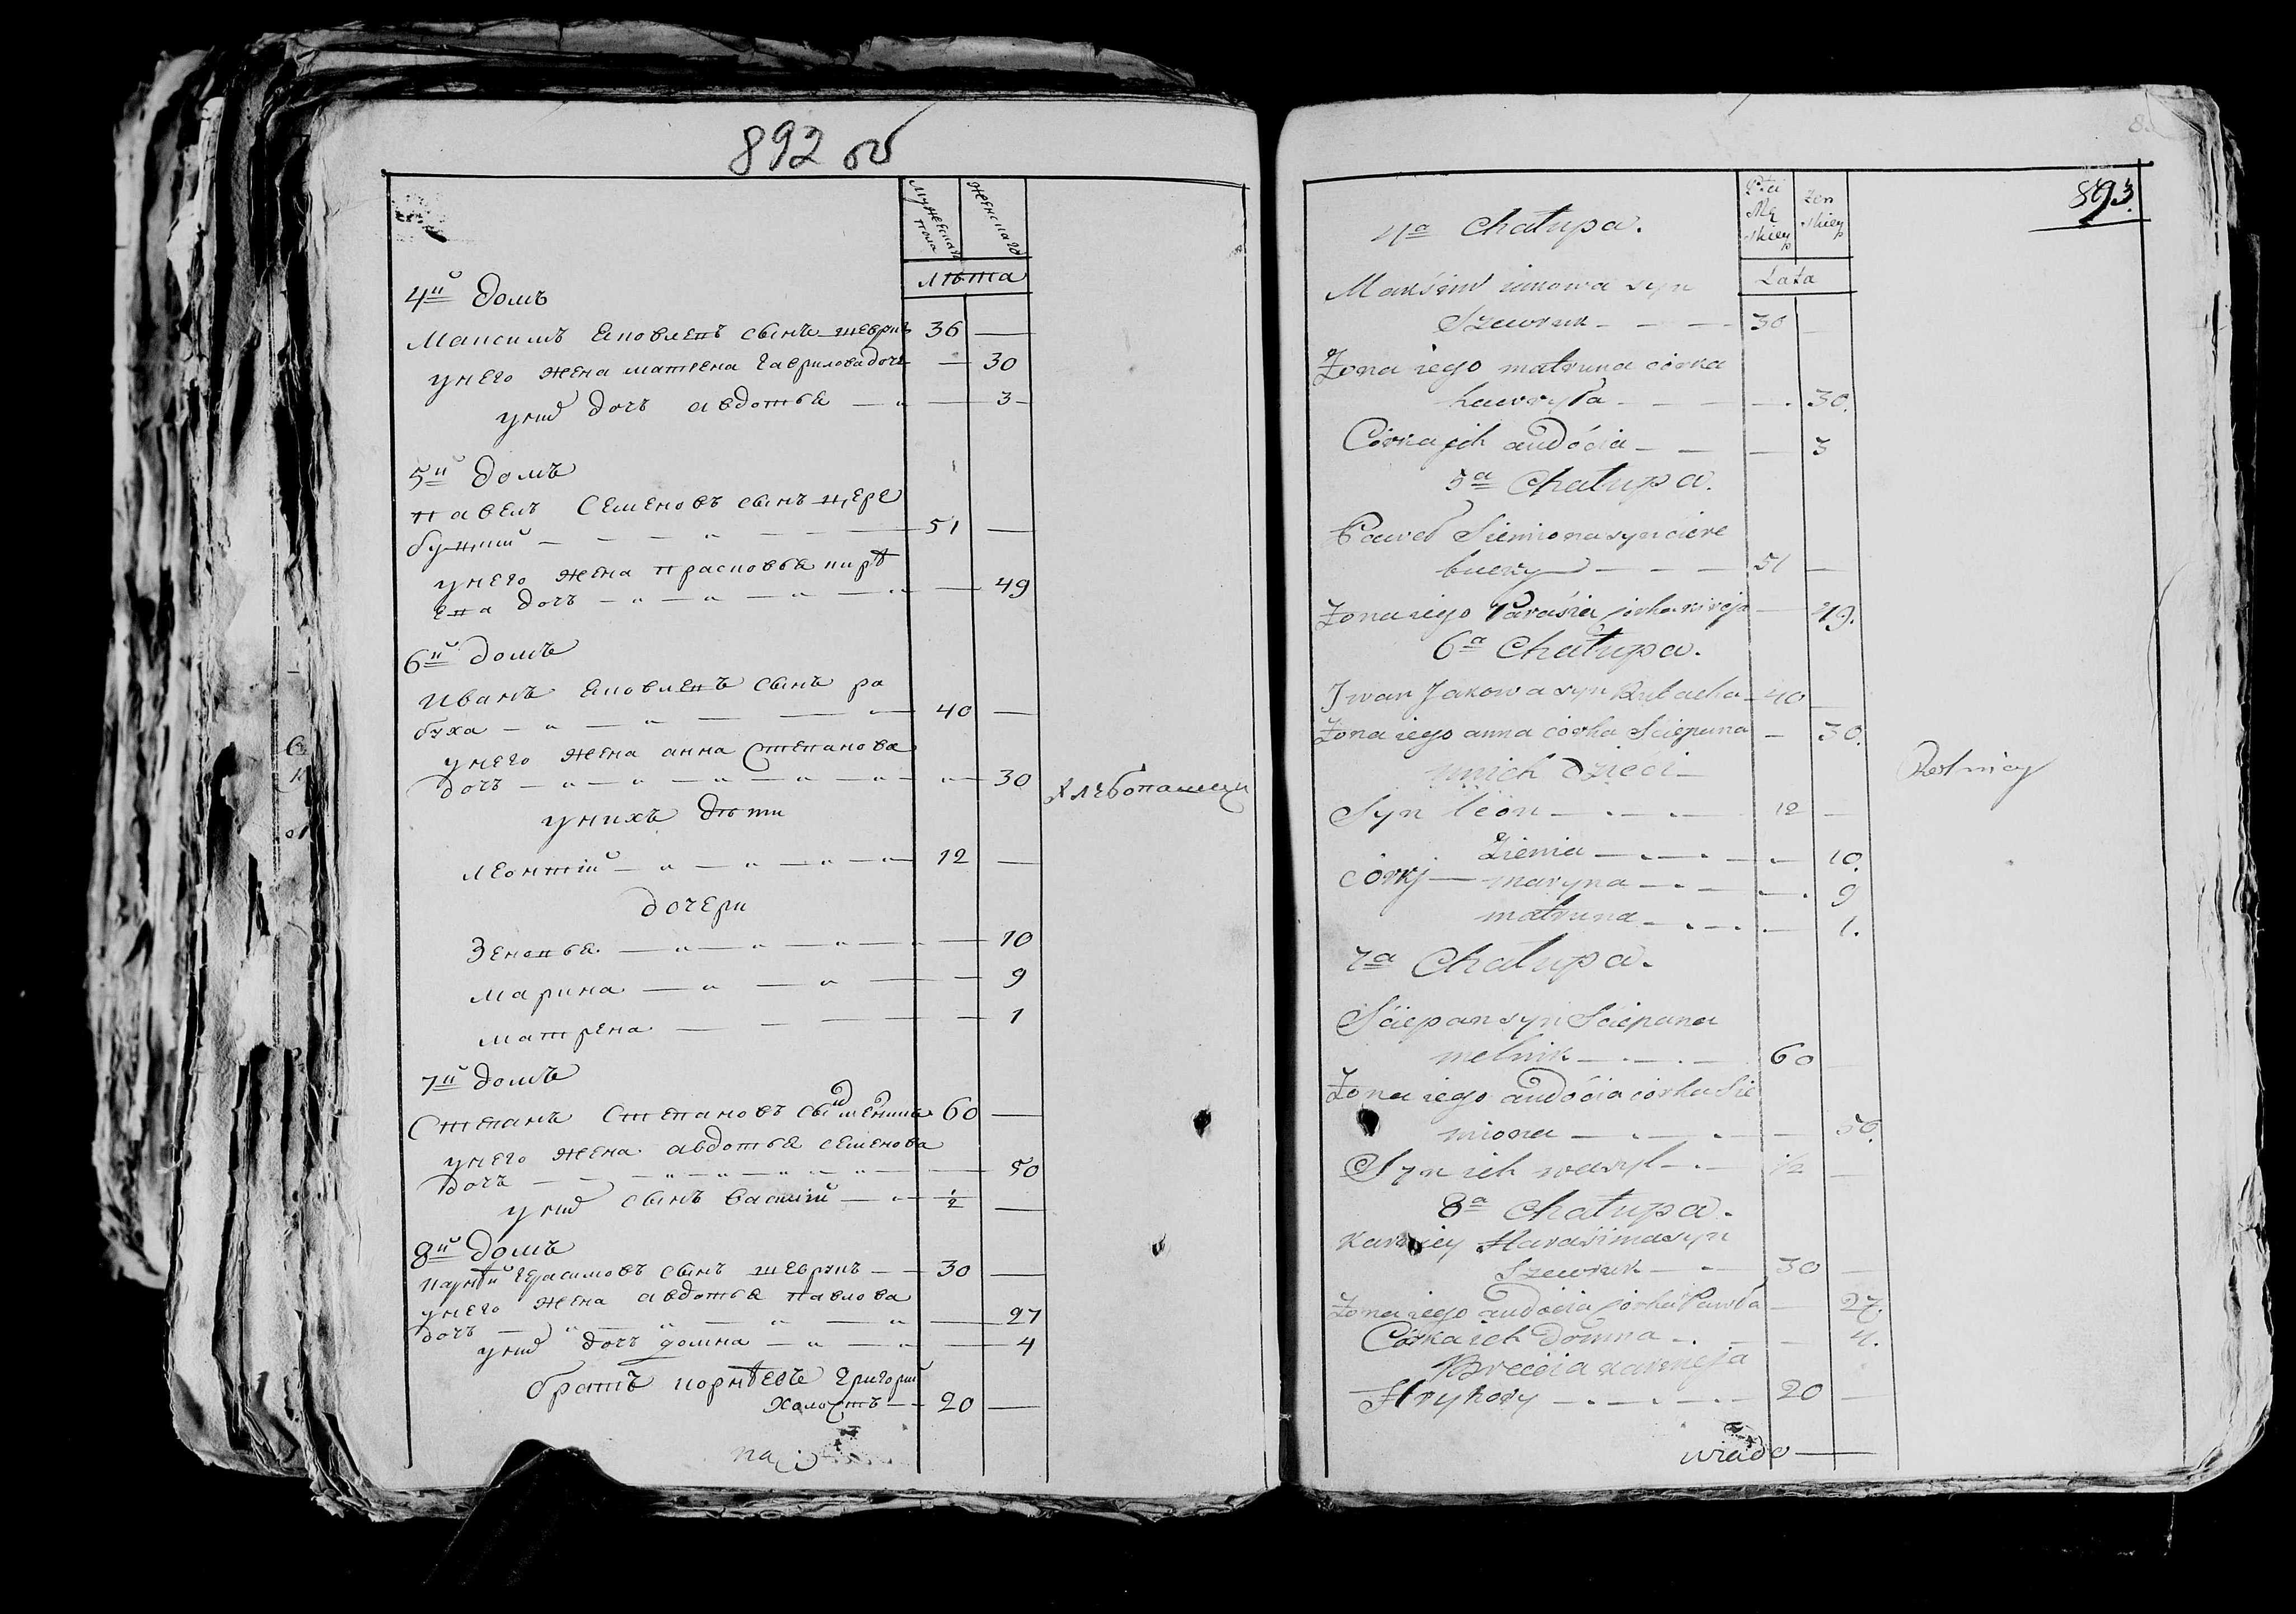 892 об
мужеска
пола
женскаго
лѣта
4й домъ
Максимъ Яковлевъ сынъ шеврукъ 36 —
у него жена матрена гаврилова дочь — 30
у них дочь авдотья — 3
5й домъ
павелъ Семеновъ сынъ цере
буцкий 51 —
у него жена прасковья кирѣ
ева дочь — 49
6й домъ
Иванъ Яковлевъ сынъ ру
баха 40 —
у него жена анна Степанова
дочь — 30
хлѣбопашцы
у нихъ дѣти
леонтий 12 —
дочери
Зеновья — 10
марина — 9
матрена — 1
7й домъ
Степанъ Степановъ сынъ 60 —
у него жена авдотья семенова
дочь — 50
у них сынъ василий ½ —
8й домъ
карнѣй Герасимовъ сынъ шеврукъ 30 —
у него жена авдотья павлова
дочь — 27
у них дочь домна — 4
братъ корнѣевъ григорий
холостъ 20 —
893
4a Chałupa.
Płci
Mę
skiey
żen
skiey
Lata
Maksim iakowa syn
Szewruk 36 —
Żona iego matruna córka
hawryła — 30.
Córka jch audócia — 3
5a Chałupa.
Paweł Siemiona syn cere
bucky 51 —
Żona iego Paraśia córka kireja — 49.
6a Chałupa.
Jwan Jakowa syn Rubacha 40 —
Żona iego anna córka Sciepana — 30.
unich dzieci
Rolnicy
Syn léon 12 —
Zienia — 10.
córkj — maryna — 9
matruna — 1.
7a Chałupa.
Sciepan syn Sciepana
melnik 60 —
Żona iego audócia córka Sie
miona — 50.
Syn ich wasyl ½ —
8a Chałupa.
Karniey Haraśima syn
Szewruk 30 —
Żona iego audócia córka Pawła — 27.
Córka ich Domna — 4.
Brecia karneja
Hryhory 20 —
wiado